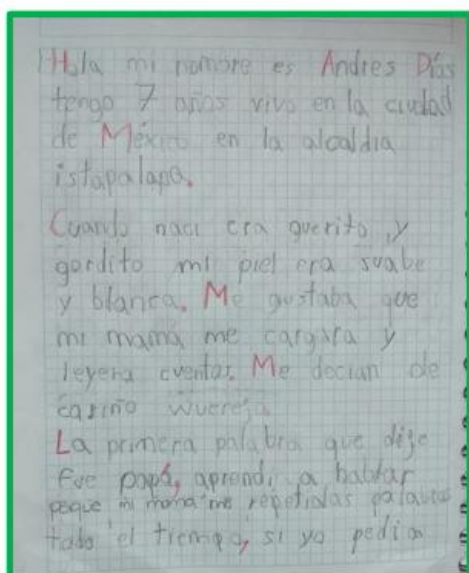 Hola mi nombre es Andres Días
tengo 7 años vivo en la ciudad
de México en la alcaldia
istapalapa.
Cuando naci era guerito, y
gordito mi piel era suabe
y blanca. Me gustaba que
mi mamá me cargara y
leyera cuentos. Me decian de
cariño
La primera palabra que dige
fue papá, aprendi a hablar
peque mi mama me repetialas palabras
todo el tiempo, si yo pedia